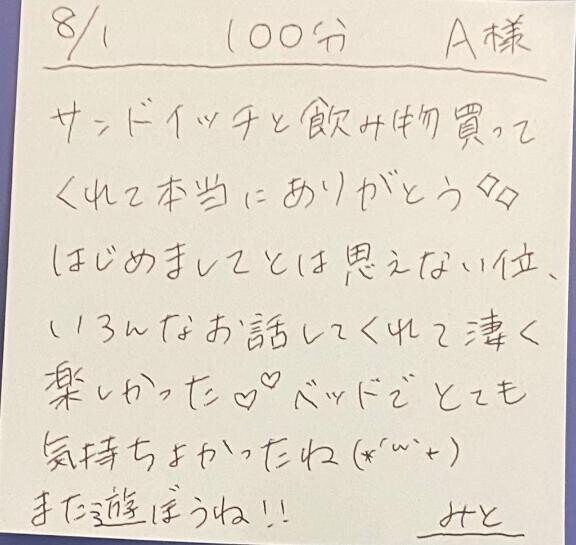 8/1 100分 A様
サンドイッチと飲み物買って
くれて本当にありがとう◇◇
はじめましてとは思えない位、
いろんなお話してくれて凄く
楽しかった♡♡ ベッドでとても
気持ちよかったね(*´ω`*)
また遊ぼうね!!
みと